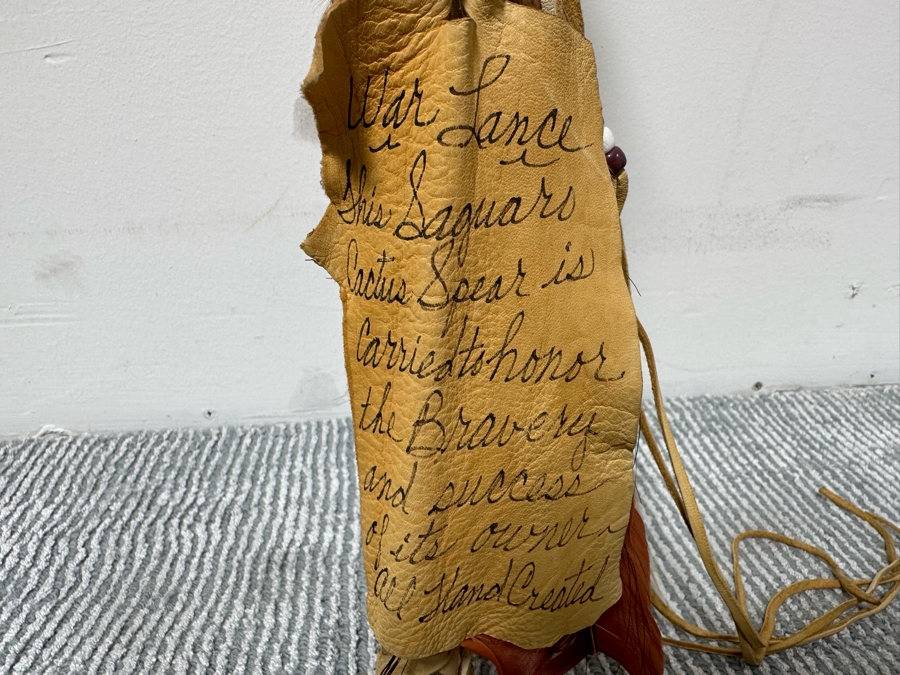 War Lance
This Saguaro
Cactus Spear is
Carried to honor
the Bravery
and success
of its owner
All Hand Created